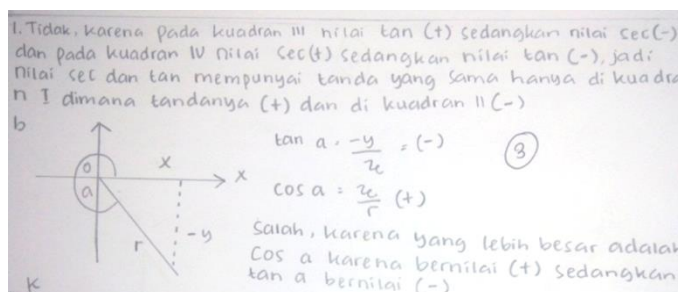 1. Tidak, karena pada kuadran III nilai tan (+) sedangkan nilai sec (-)
dan pada kuadran IV nilai sec (+) sedangkan nilai tan (-), jadi
nilai sec dan tan mempunyai tanda yang sama hanya di kuadra
n I dimana tandanya (+) dan di kuadran II (-)
b
x
x
o
a
r
-y
tan a = -y/x = (-)
3
cos a = x/r (+)
Salah, karena yang lebih besar adalah
cos a karena bernilai (+) sedangkan
tan a bernilai (-)
k